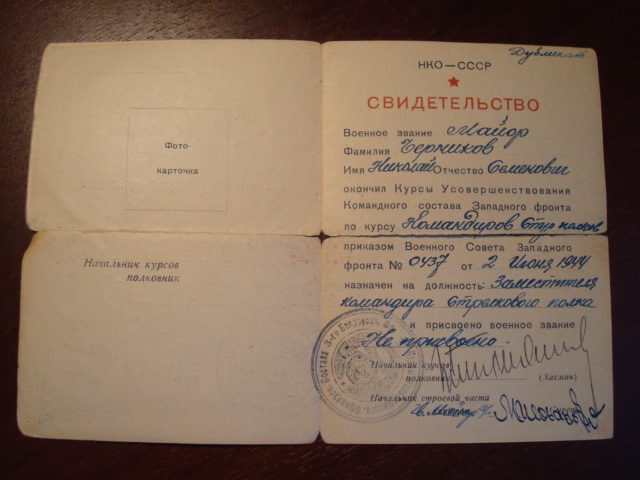 Фото-
карточка
Начальник курсов
полковник
Дубликат
НКО—СССР
СВИДЕТЕЛЬСТВО
Военное звание Майор
Фамилия Черников
Имя Николай Отчество Семенович
окончил Курсы Усовершенствования
Командного состава Западного фронта
по курсу Командиров Стр полков
приказом Военного Совета Западного
фронта № 0437 от 2 Июня 1944
назначен на должность: Заместителя
командира Стрелкового полка
и присвоено военное звание
Не присвоено.
Начальник курсов
полковник (Хасман)
Начальник строевой части